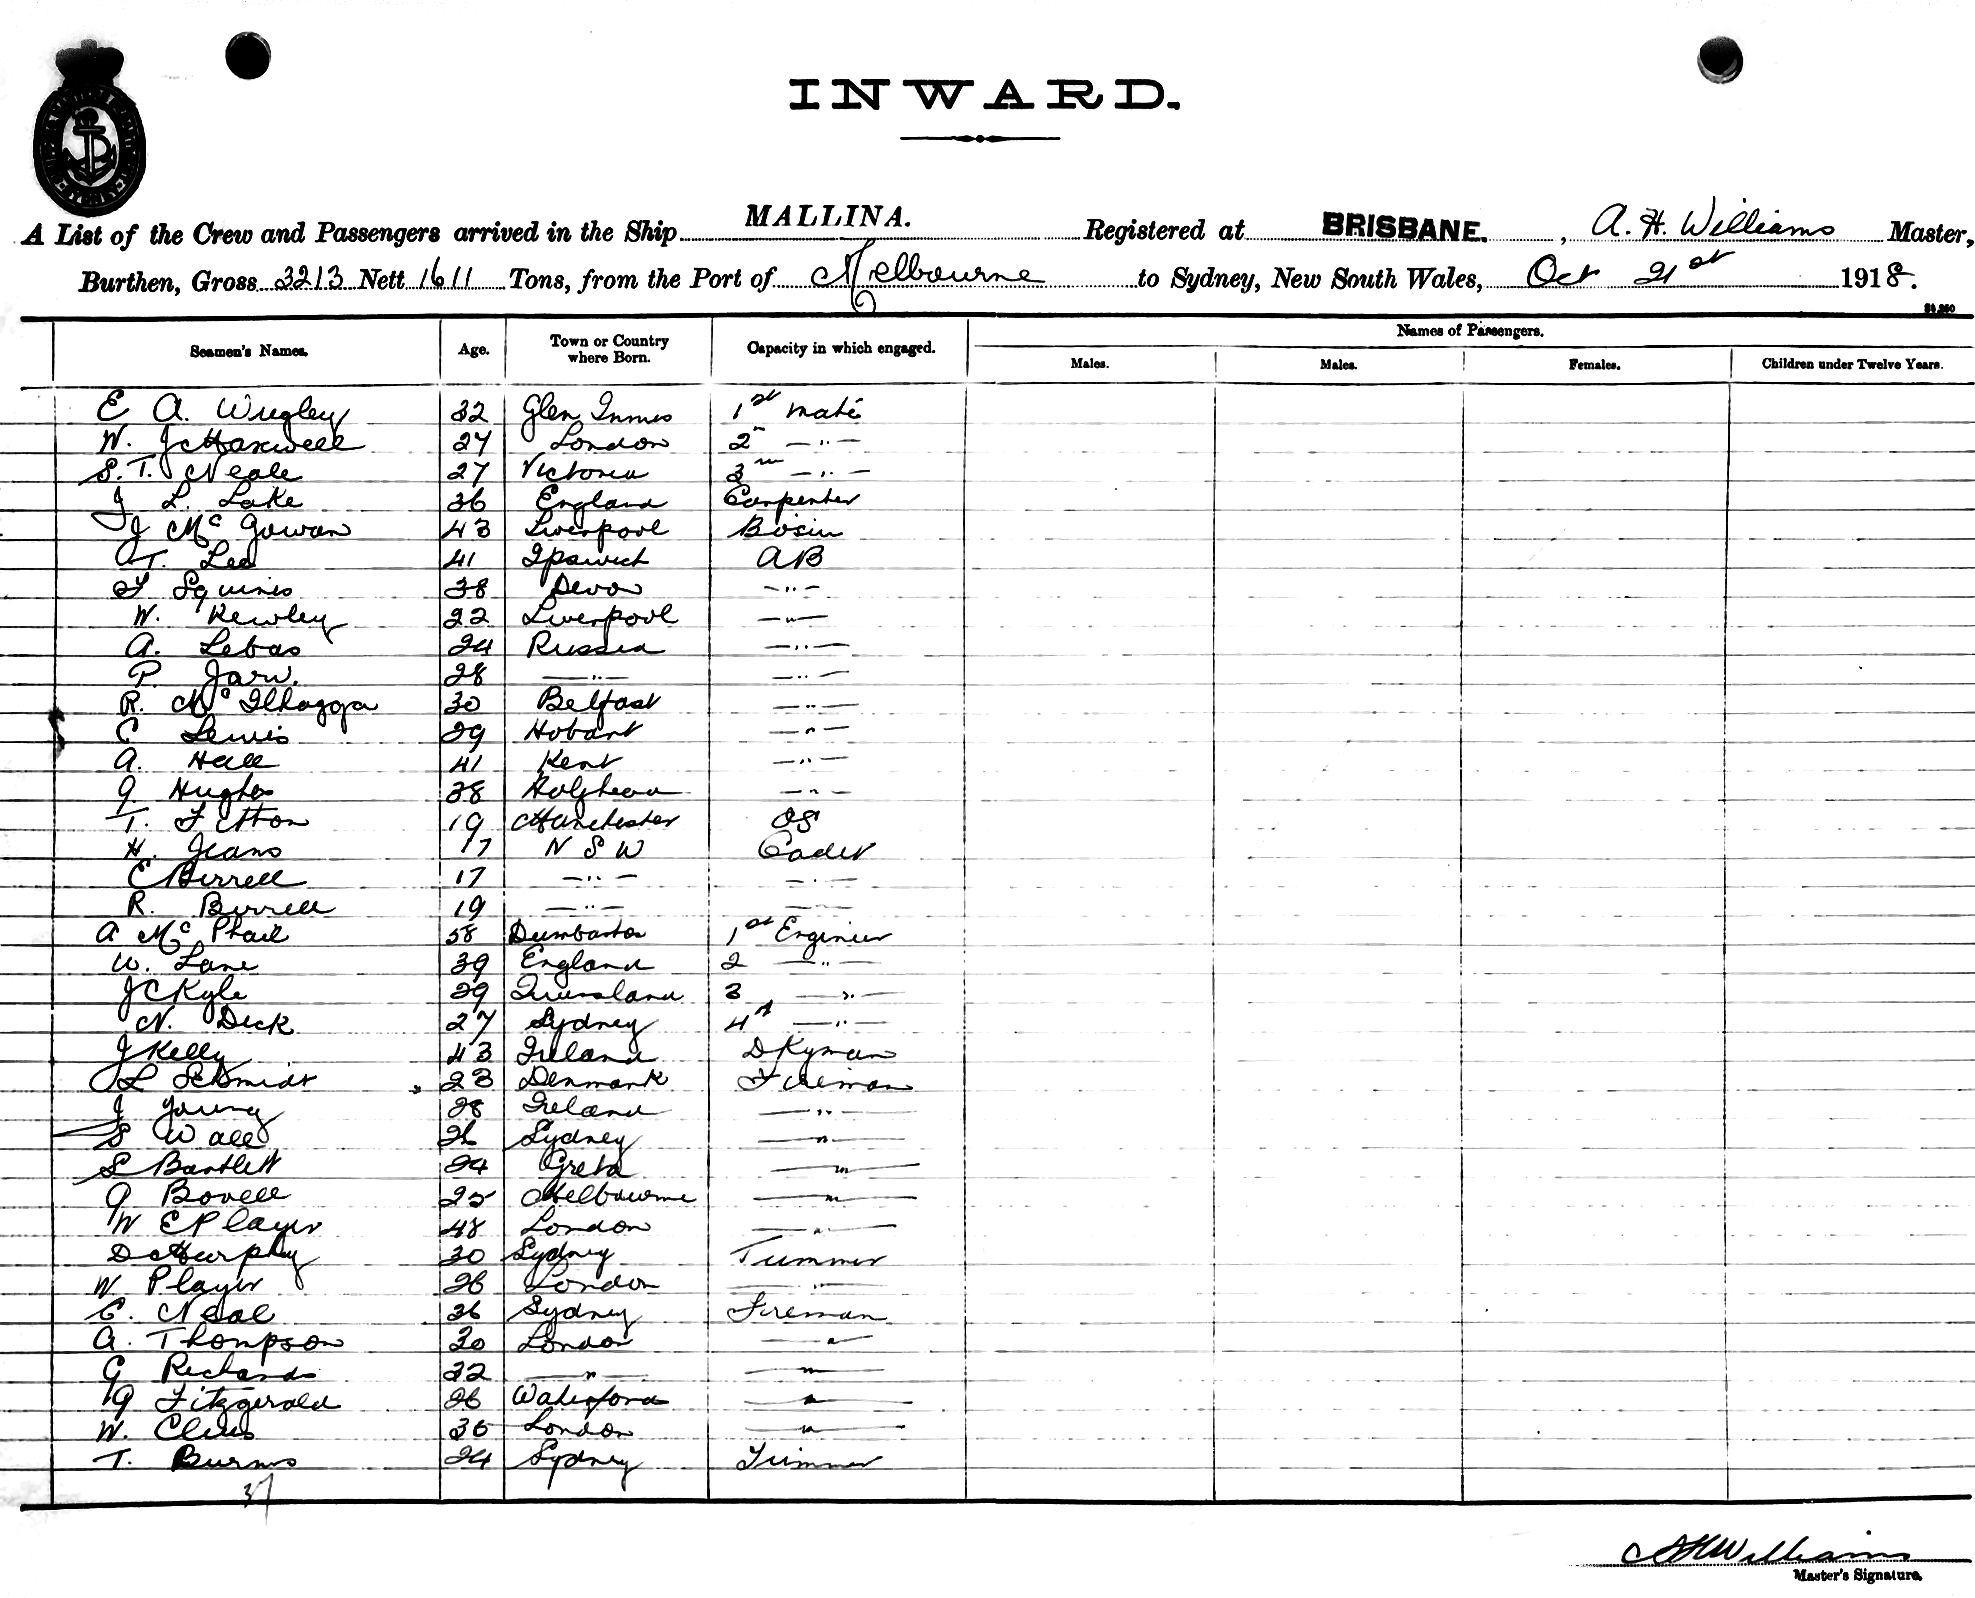 INWARD.
A List of the Crew and Passengers arrived in the Ship MALLINA. Registered at BRISBANE, A. H. Williams Master,
Burthen, Gross 3213 Nett 1611 Tons, from the Port of Melbourne to Sydney, New South Wales, Oct 21st 1918.
Names of Passengers.
Seamen's Names. Age. Town or Country where Born. Capacity in which engaged. Males. Males. Females. Children under Twelve Years.
E A. Wrigley 32 Glen Innes 1st mate
W. J Maxwell 27 London 2n —"—
S. T. Neale 27 Victoria 3rd —"—
J L. Lake 36 England Carpenter
J McGowan 43 Liverpool Bosun
T. Lee 41 Ipswich AB
F Squires 38 Devon —"—
W. Kewley 22 Liverpool —"—
A. Lebas 24 Russia —"—
P. Jarw. 28 —"— —"—
R. McIlhagga 30 Belfast —"—
C Lewis 29 Hobart —"—
A. Hall 41 Kent —"—
G Hughes 38 Holyhead —"—
T. Fitton 19 Manchester OS
H. Jeans 17 N S W Cadet
C Birrell 17 —"— —"—
R. Birrell 19 —"— —"—
A McPhail 58 Dumbarton 1st Engineer
W. Lane 39 England 2 —"—
J C Kyle 29 Queensland 3 —"—
N. Dick 27 Sydney 4th —"—
J Kelly 43 Ireland Dkyman
L Schmidt 23 Denmark Fireman
J Young 28 Ireland —"—
S Wall 26 Sydney —"—
S Bartlett 24 Greta —"—
G Bovell 25 Melbourne —"—
W E Player 48 London —"—
D Murphy 30 Sydney Trimmer
W Player 26 London —"—
E. Neal 36 Sydney Fireman
A. Thompson 30 London —"—
G Richards 32 —"— —"—
G Fitzgerald 26 Waterford —"—
W. 36 London —"—
T. Burns 24 Sydney Trimmer
37
A H Williams
Master's Signature.